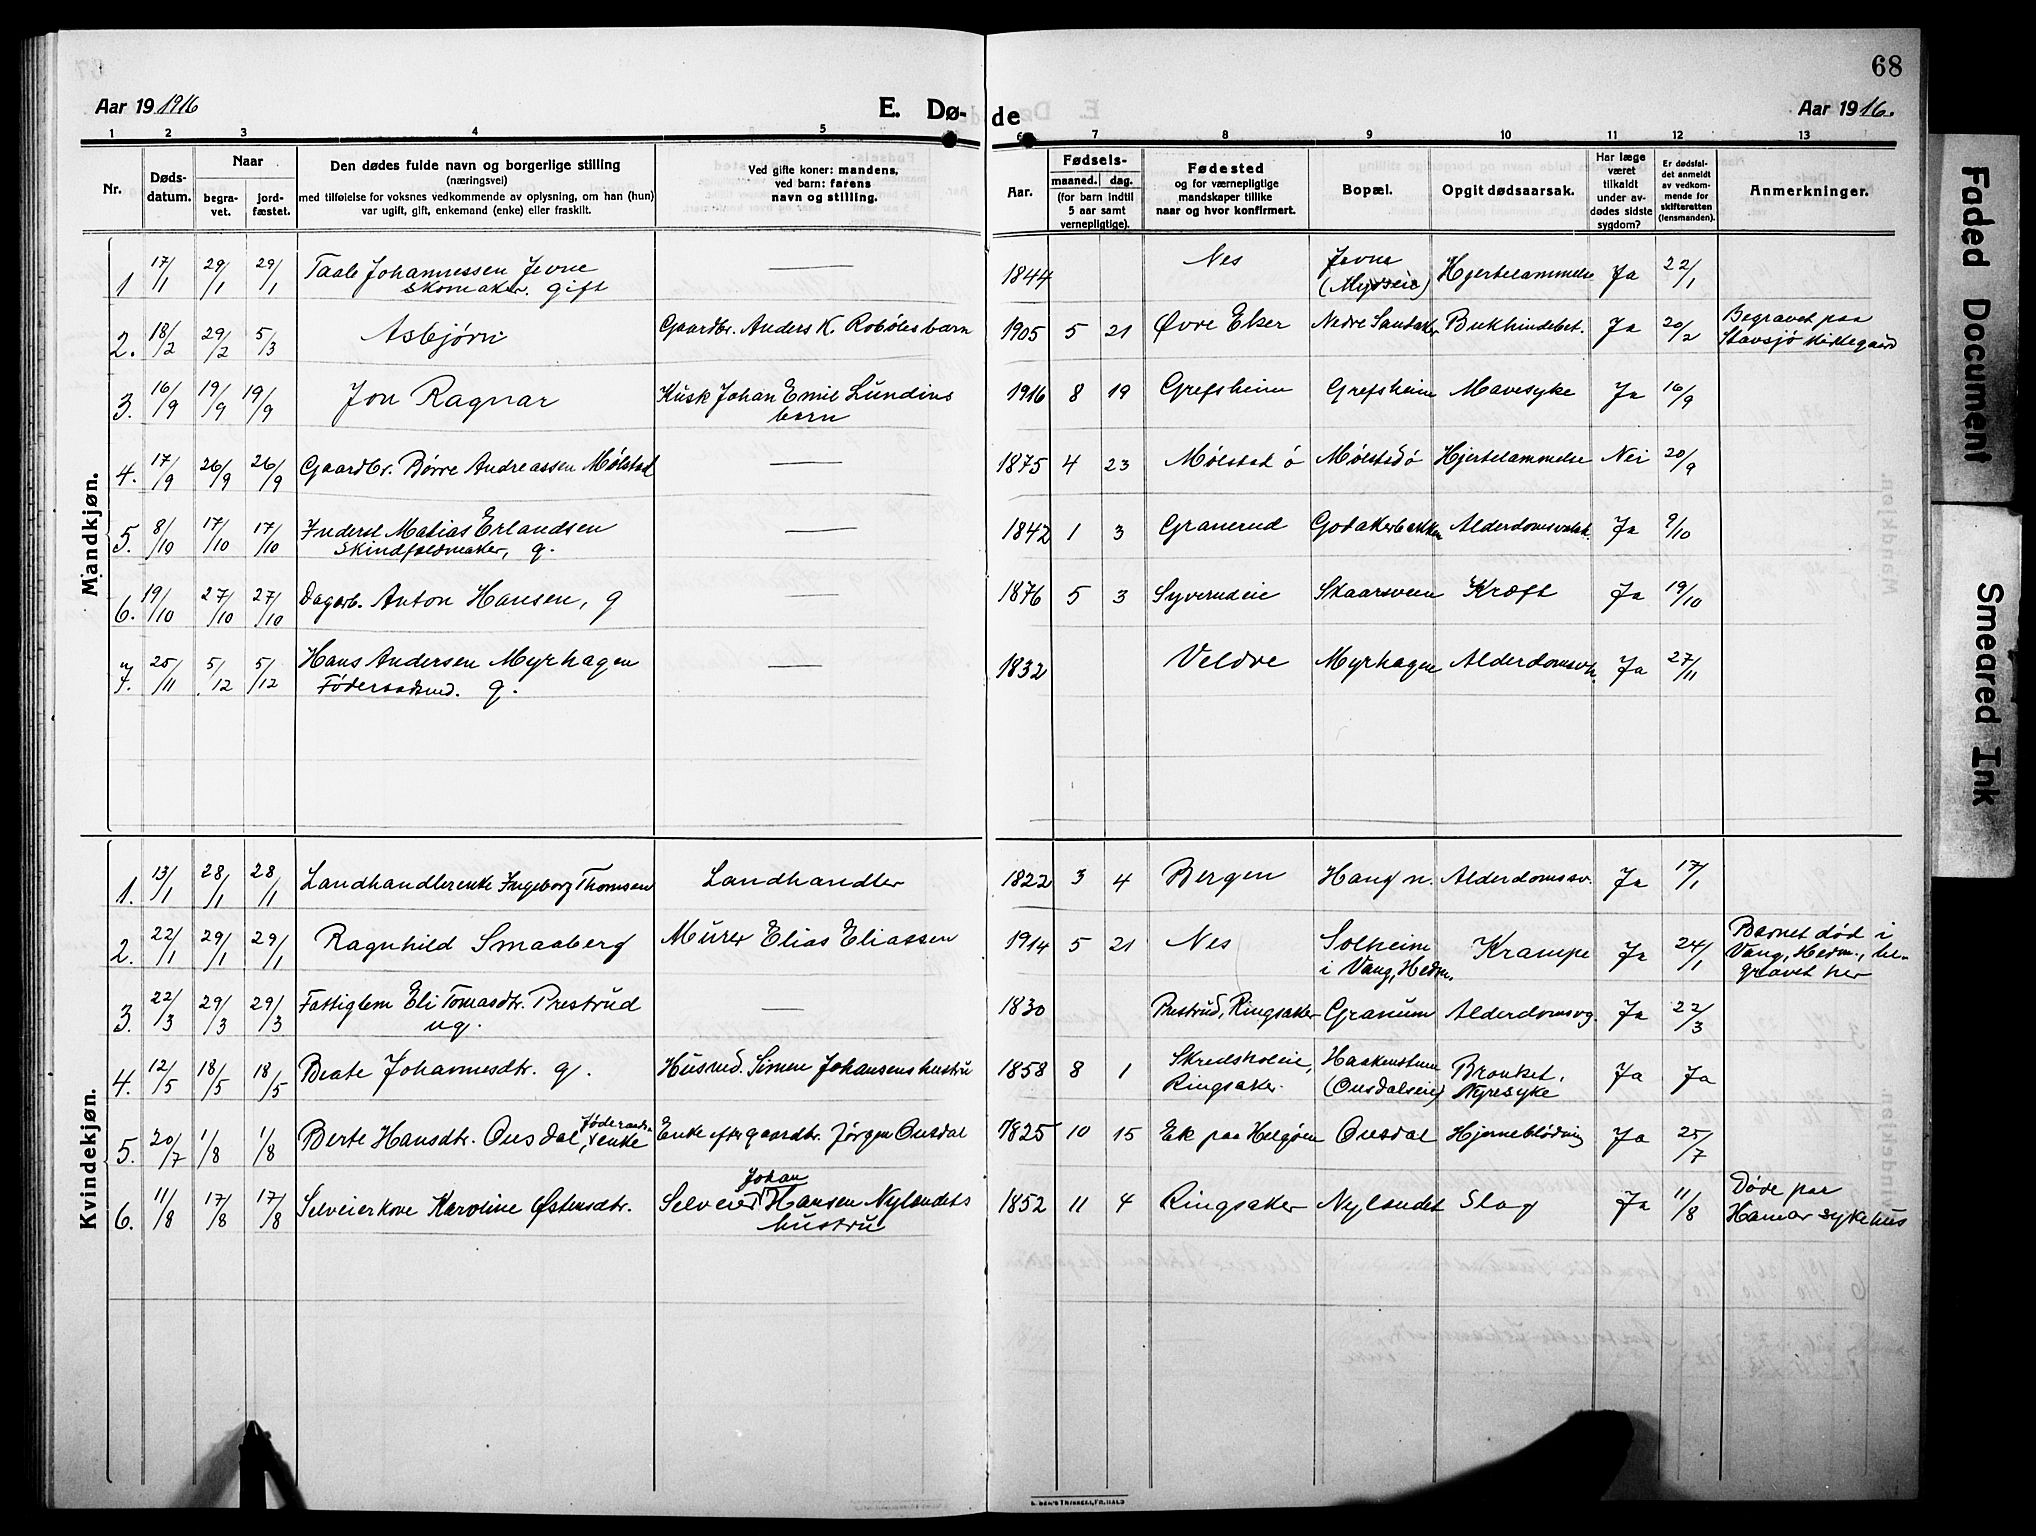 68
Aar 19 1916
E. Dø-
de
Aar 1916.
1 2 3 4 5 6 7 8 9 10 11 12 13
Nr.
Døds-
datum.
Naar
begra-
vet.
jord-
fæstet.
Den dødes fulde navn og borgerlige stilling
(næringsvei)
med tilføielse for voksnes vedkommende av oplysning, om han (hun)
var ugift, gift, enkemand (enke) eller fraskilt.
Ved gifte koner: mandens,
ved barn: farens
navn og stilling.
Aar.
Fødsels-
maaned. dag.
(for barn indtil
5 aar samt
vernepligtige).
Fødested
og for værnepligtige
mandskaper tillike
naar og hvor konfirmert.
Bopæl.
Opgit dødsaarsak.
Har læge
været
tilkaldt
under av-
dødes sidste
sygdom?
Er dødsfal-
det anmeldt
av vedkom-
mende for
skifteretten
(lensmanden).
Anmerkninger.
Mandkjøn.
1 17/1 29/1 29/1 Taale Johannessen Jevne — 1844 Nes Jevne Hjertelammelse Ja 22/1
skomaker. gift
2. 18/2 29/2 5/3 Asbjørn Gaardbr. Anders K. Robøles barn 1905 5 21 Øvre Eker Nedre Bukhindebet. Ja 20/2 Begravet paa
Stavsjø kirkegaard
3. 16/9 19/9 19/9 Jon Ragnar Kusk Johan Emil Lundins 1916 8 19 Grefsheim Grefsheim Mavesyke Ja 16/9
barn
4. 17/9 26/9 26/9 Gaardbr. Børre Andreassen Mølstad — 1875 4 23 Mølstad ø Mølstad ø Hjertelammelse Nei 20/9
5. 8/10 17/10 17/10 Inderst Matias Erlandsen — 1842 1 3 Granerud Godakerbakken Alderdomssvak. Ja 9/10
Skindfeldmaker, g.
6. 19/10 27/10 27/10 Dagarb. Anton Hansen, g — 1876 5 3 Syverudeie Skaarsveen Kræft Ja 19/10
7. 25/11 5/12 5/12 Hans Andersen Myrhagen — 1832 Veldre Myrhagen Alderdomssv. Ja 27/11
Føderaadsmd. g.
Kvindekjøn.
1. 13/1 28/1 28/1 Landhandlerenke Ingeborg Thomsen Landhandler 1822 3 4 Bergen Haug n. Alderdomssv. Ja 17/1
2. 22/1 29/1 29/1 Ragnhild Smaaberg Murer Elias Eliassen 1914 5 21 Nes Solheim Krampe Ja 24/1 Barnet død i
i Vang, Hedm. Vang, Hedm., be-
gravet her
3. 22/3 29/3 29/3 Fattiglem Eli Tomasdtr. Prestrud — 1830 Prestrud, Ringsaker Granum Alderdomsvg. Ja 22/3
ug.
4. 12/5 18/5 18/5 Beate Johannesdtr. g. Husmd. Simen Johansens hustru 1858 8 1 Skredsholeie, Haakenstuen Bronket. Ja Ja
Ringsaker. (Ousdalseie) Nyresyke
5. 20/7 1/8 1/8 Berte Hansdtr. Ousdal, føderaads enke Enke efter gaardbr. Jørgen Ousdal 1825 10 15 Ek paa Helgøen Ousdal Hjerneblødning Ja 25/7
6. 11/8 17/8 17/8 Selveierkone Karoline Østensdtr. Selveier Johan Hansen Nylandets 1852 11 4 Ringsaker Nylandet Slag Ja 11/8 Døde paa
hustru Hamar sykehus
Faded Document
Smeared Ink